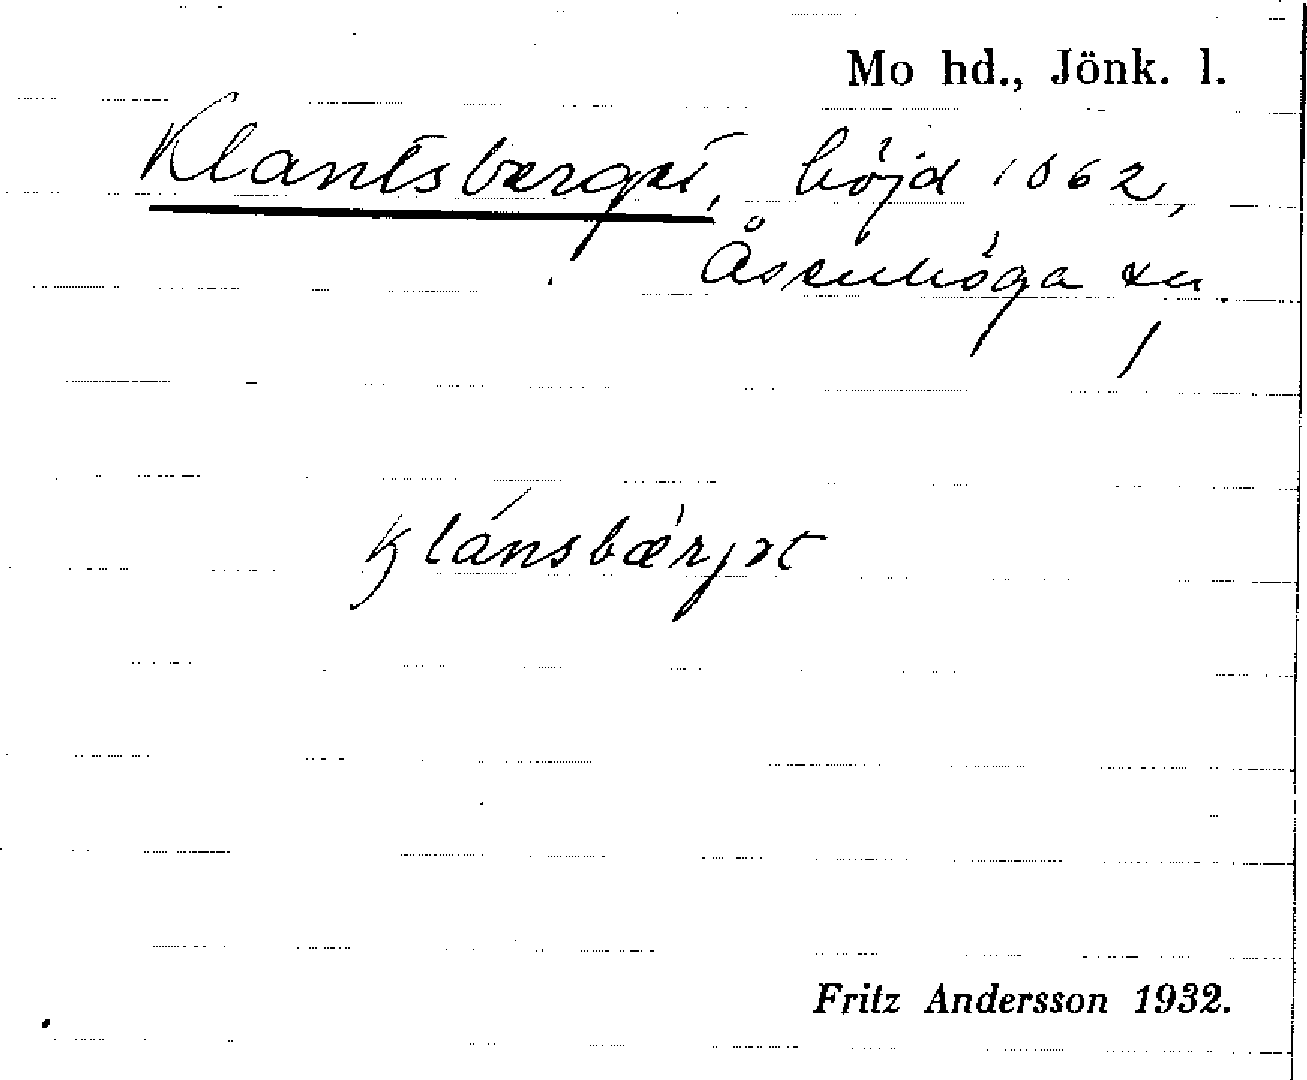 Mo hd., Jönk. l.
Klantsberget, höjd 1062,
Åsenhöga sn.
Klánsbærjət
Fritz Andersson 1932.